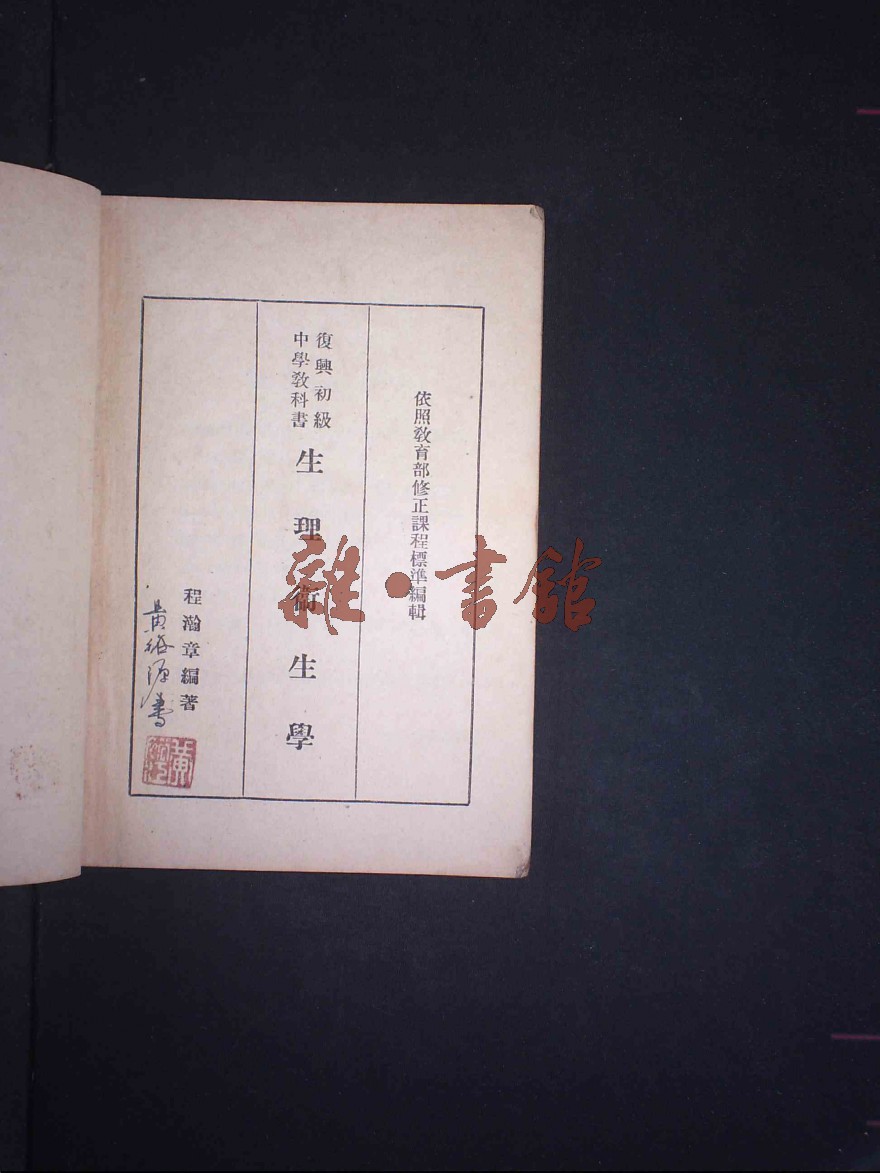 依照教育部修正課程標準編輯
復興初級
中學教科書
生理衛生學
程瀚章編著
雜·書館